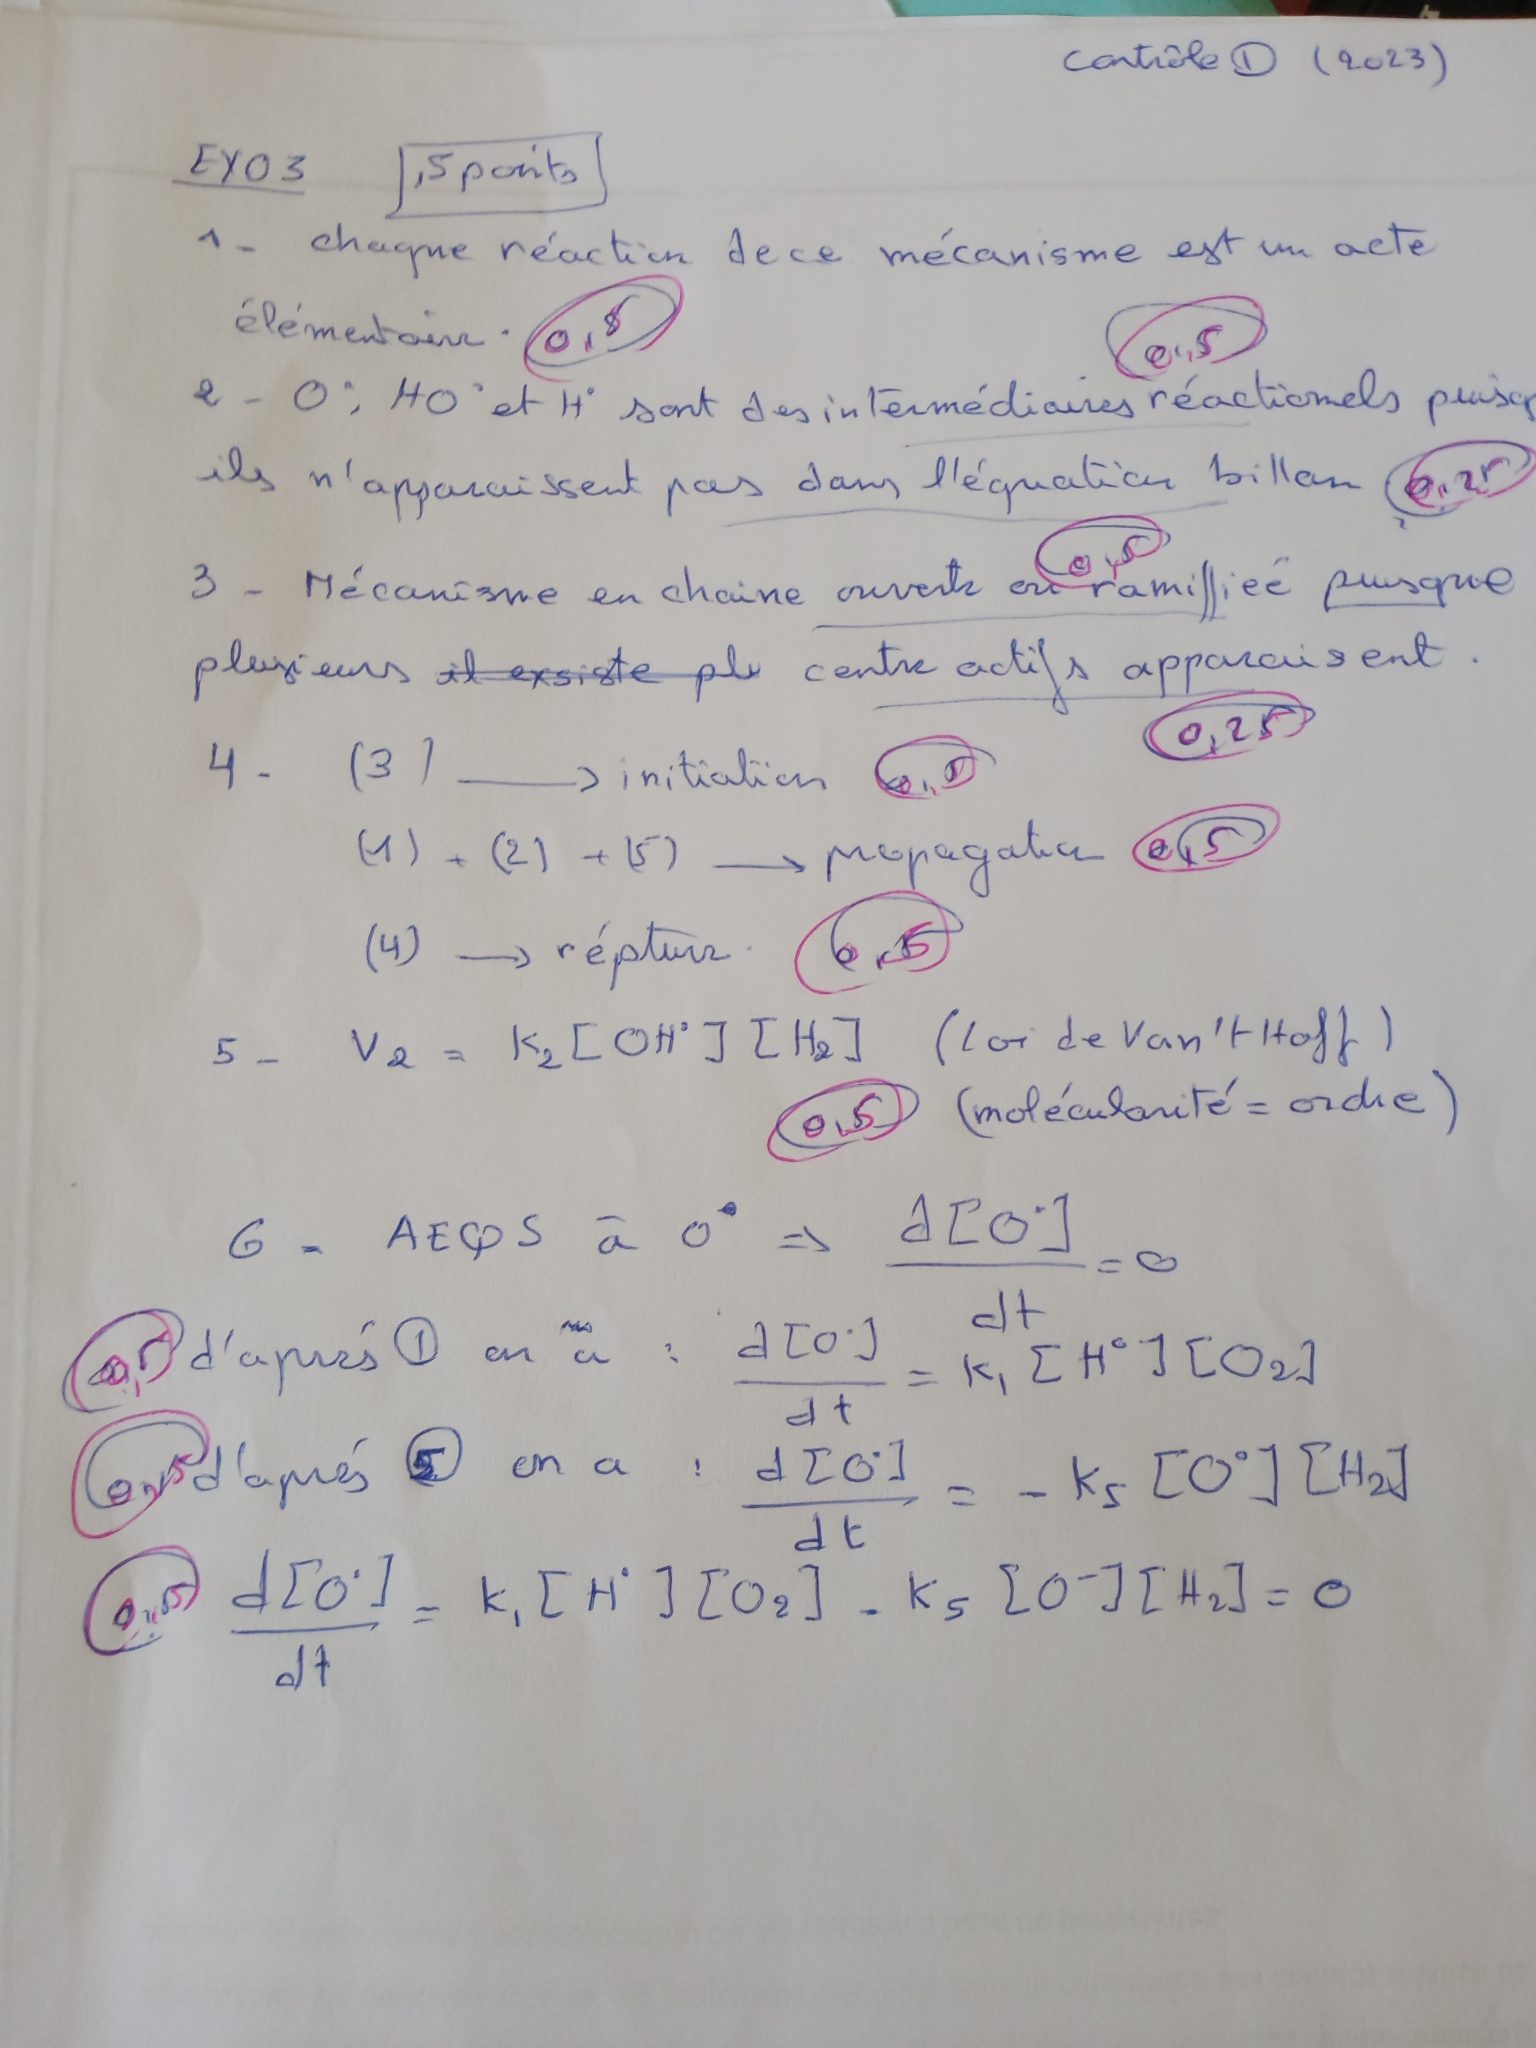 Contrôle ① (2023)
EXO3 ,5 points
1- chaque réaction de ce mécanisme est un acte
élémentaire. 0,5
0,5
2- O°, HO° et H° sont des intermédiaires réactionnels puisq
ils n'apparaissent pas dans l'équation billan 0,25
0,5
3- Mécanisme en chaine ouverte ou ramiffieé puisque
plusieurs centre actifs apparaissent.
0,25
4- (3) → initiation 0,5
(1) + (2) + (5) → propagation 0,5
(4) → répture. 0,5
5- V2 = K2 [OH°] [H2] (Loi de Van't Hoff)
0,5 (molécularité = ordre)
6- AEQS à O° => d[O°]/dt = 0
0,5 d'aprés ① on a : d[O°]/dt = K1 [H°] [O2]
0,5 d'aprés ⑤ on a : d[O°]/dt = - K5 [O°] [H2]
0,5 d[O°]/dt = K1 [H°] [O2] - K5 [O-] [H2] = 0